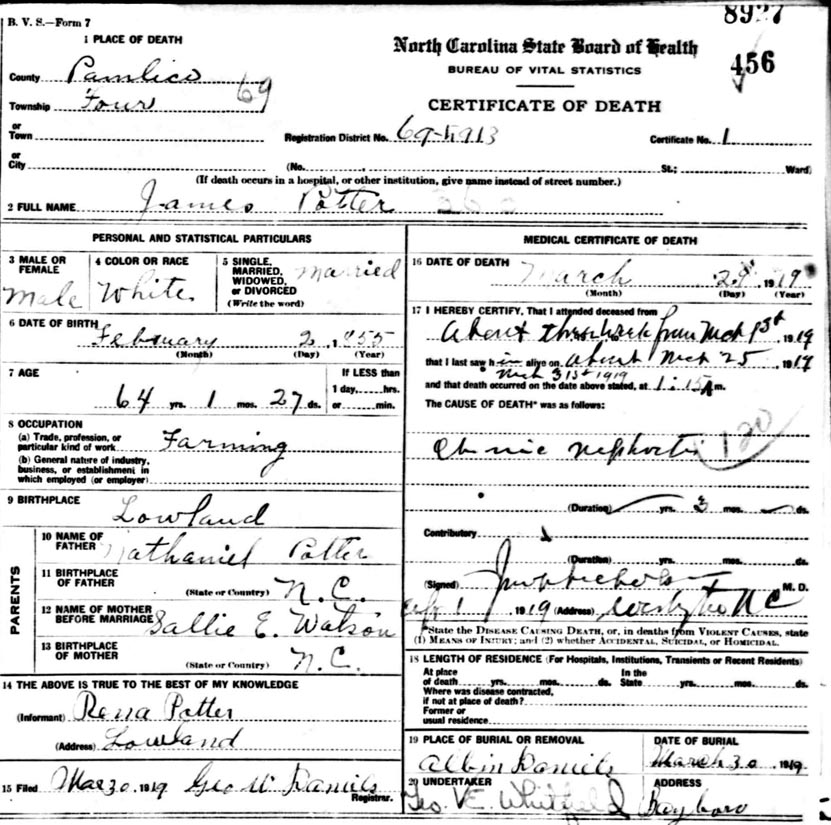 B. V. S.—Form 7
8927
1 PLACE OF DEATH
North Carolina State Board of Health
BUREAU OF VITAL STATISTICS
456
County Pamlico
69
Township Four
CERTIFICATE OF DEATH
or
Town
Registration District No. 69-5913
Certificate No. 1
or
City
(No. St.; Ward)
(If death occurs in a hospital, or other institution, give name instead of street number.)
2 FULL NAME James Potter
PERSONAL AND STATISTICAL PARTICULARS
3 MALE OR FEMALE
Male
4 COLOR OR RACE
White
5 SINGLE, MARRIED, WIDOWED, or DIVORCED
(Write the word)
Married
6 DATE OF BIRTH
February 2, 1855
(Month) (Day) (Year)
7 AGE
64 yrs. 1 mos. 27 ds.
If LESS than
1 day, hrs.
or min.
8 OCCUPATION
(a) Trade, profession, or
particular kind of work Farming
(b) General nature of industry,
business, or establishment in
which employed (or employer)
9 BIRTHPLACE
Lowland
PARENTS
10 NAME OF
FATHER Nathaniel Potter
11 BIRTHPLACE
OF FATHER
(State or Country) N.C.
12 NAME OF MOTHER
BEFORE MARRIAGE Sallie E. Watson
13 BIRTHPLACE
OF MOTHER
(State or Country) N.C.
14 THE ABOVE IS TRUE TO THE BEST OF MY KNOWLEDGE
(Informant) Rena Potter
(Address) Lowland
15 Filed Mar 30 1919 Geo W Daniels
Registrar.
MEDICAL CERTIFICATE OF DEATH
16 DATE OF DEATH
March 29, 1919
(Month) (Day) (Year)
17 I HEREBY CERTIFY, That I attended deceased from
About from Mch 1st 1919
that I last saw him alive on about Mch 25 1919
Mch 31st 1919
and that death occurred on the date above stated, at 1:15 A m.
The CAUSE OF DEATH* was as follows:
120
(Duration) yrs. 3 mos. ds.
Contributory
(Duration) yrs. mos. ds.
(Signed) M. D.
Apr 1, 1919 (Address) N C
*State the DISEASE CAUSING DEATH, or, in deaths from VIOLENT CAUSES, state
(1) MEANS OF INJURY; and (2) whether ACCIDENTAL, SUICIDAL, or HOMICIDAL.
18 LENGTH OF RESIDENCE (For Hospitals, Institutions, Transients or Recent Residents)
At place
of death yrs. mos. ds.
In the
State yrs. mos. ds.
Where was disease contracted,
if not at place of death?
Former or
usual residence
19 PLACE OF BURIAL OR REMOVAL
Albin Daniels
DATE OF BURIAL
March 30 1919
20 UNDERTAKER
Geo. Whitfield
ADDRESS
Bayboro